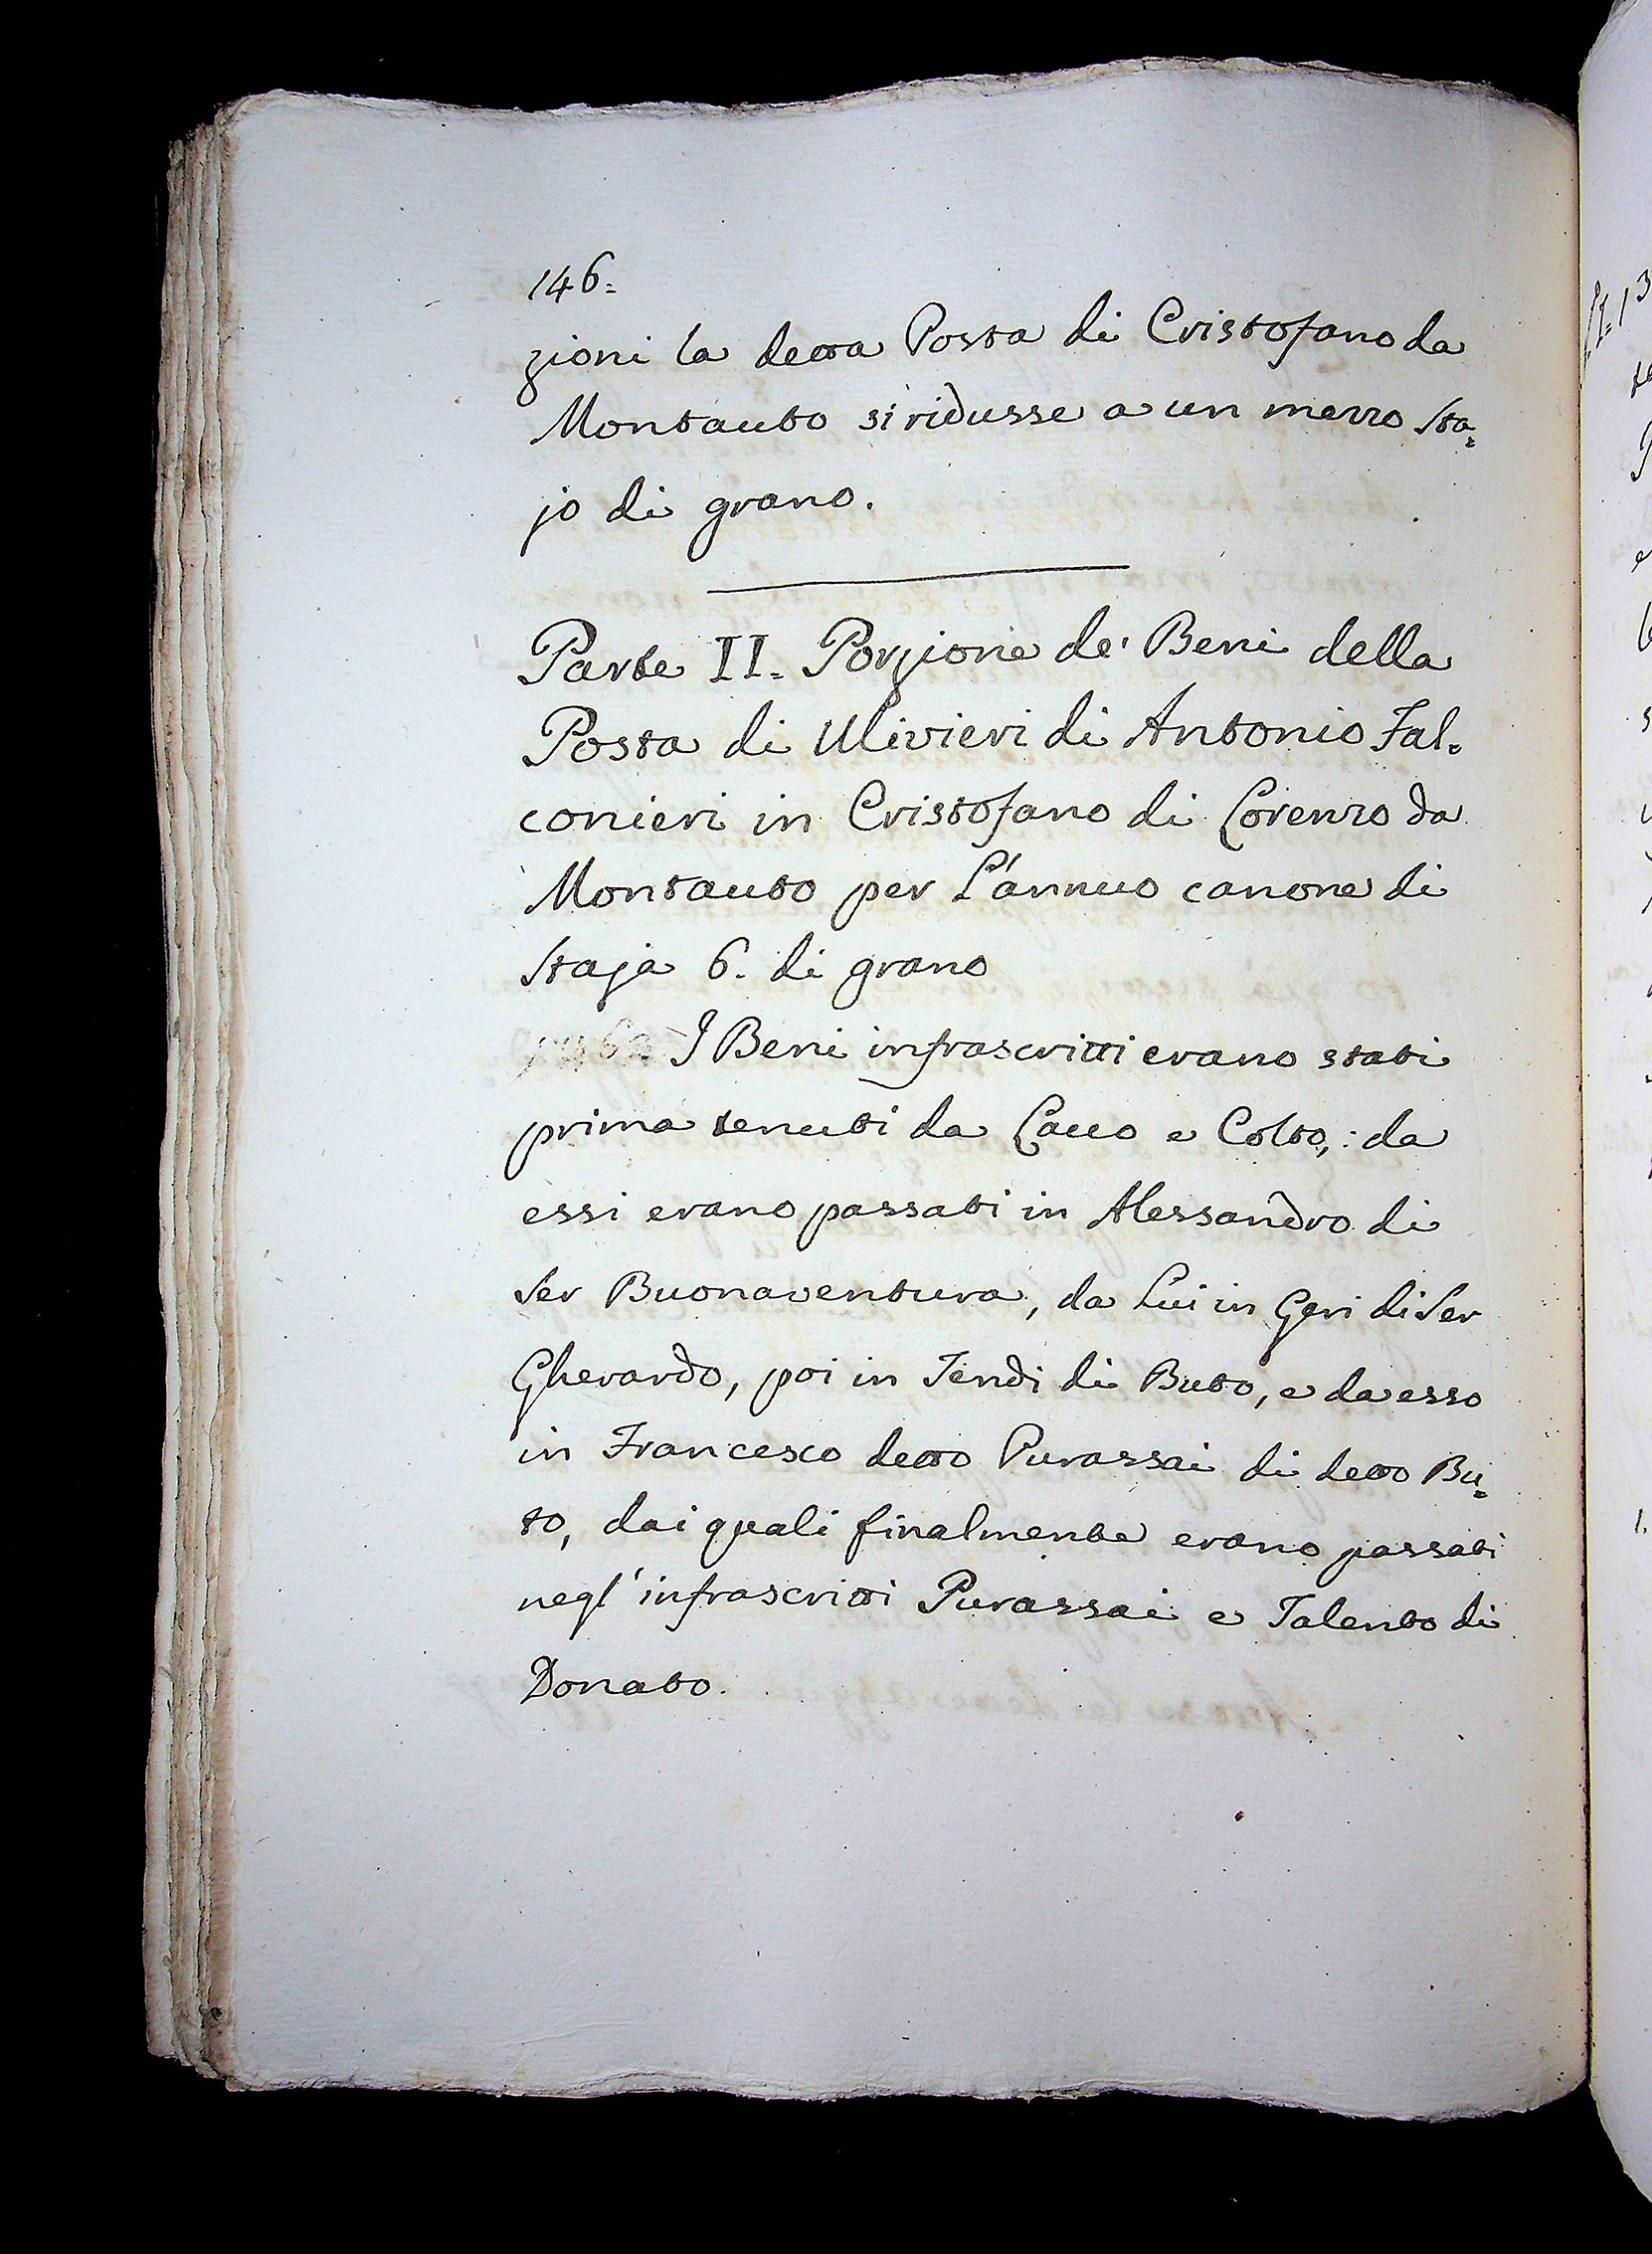 146=
zioni la detta Posta di Cristofano da
Montauto si ridusse a un mezzo Sta=
jo di grano.
Parte II. Porzione de' Beni della
Posta di Ulivieri di Antonio Fal=
conieri in Cristofano di Lorenzo da
Montauto per l'annuo canone di
Staja 6. di grano
I Beni infrascritti erano stati
prima tenuti da Lacco e Colto,: da
essi erano passati in Alessandro di
Ser Buonaventura, da Lui in Geri di Ser
Gherardo, poi in Tendi di Buto, e da esso
in Francesco detto Purassai di detto Bu=
to, dai quali finalmente erano passati
negl'infrascritti Purassai e Talento di
Donato.